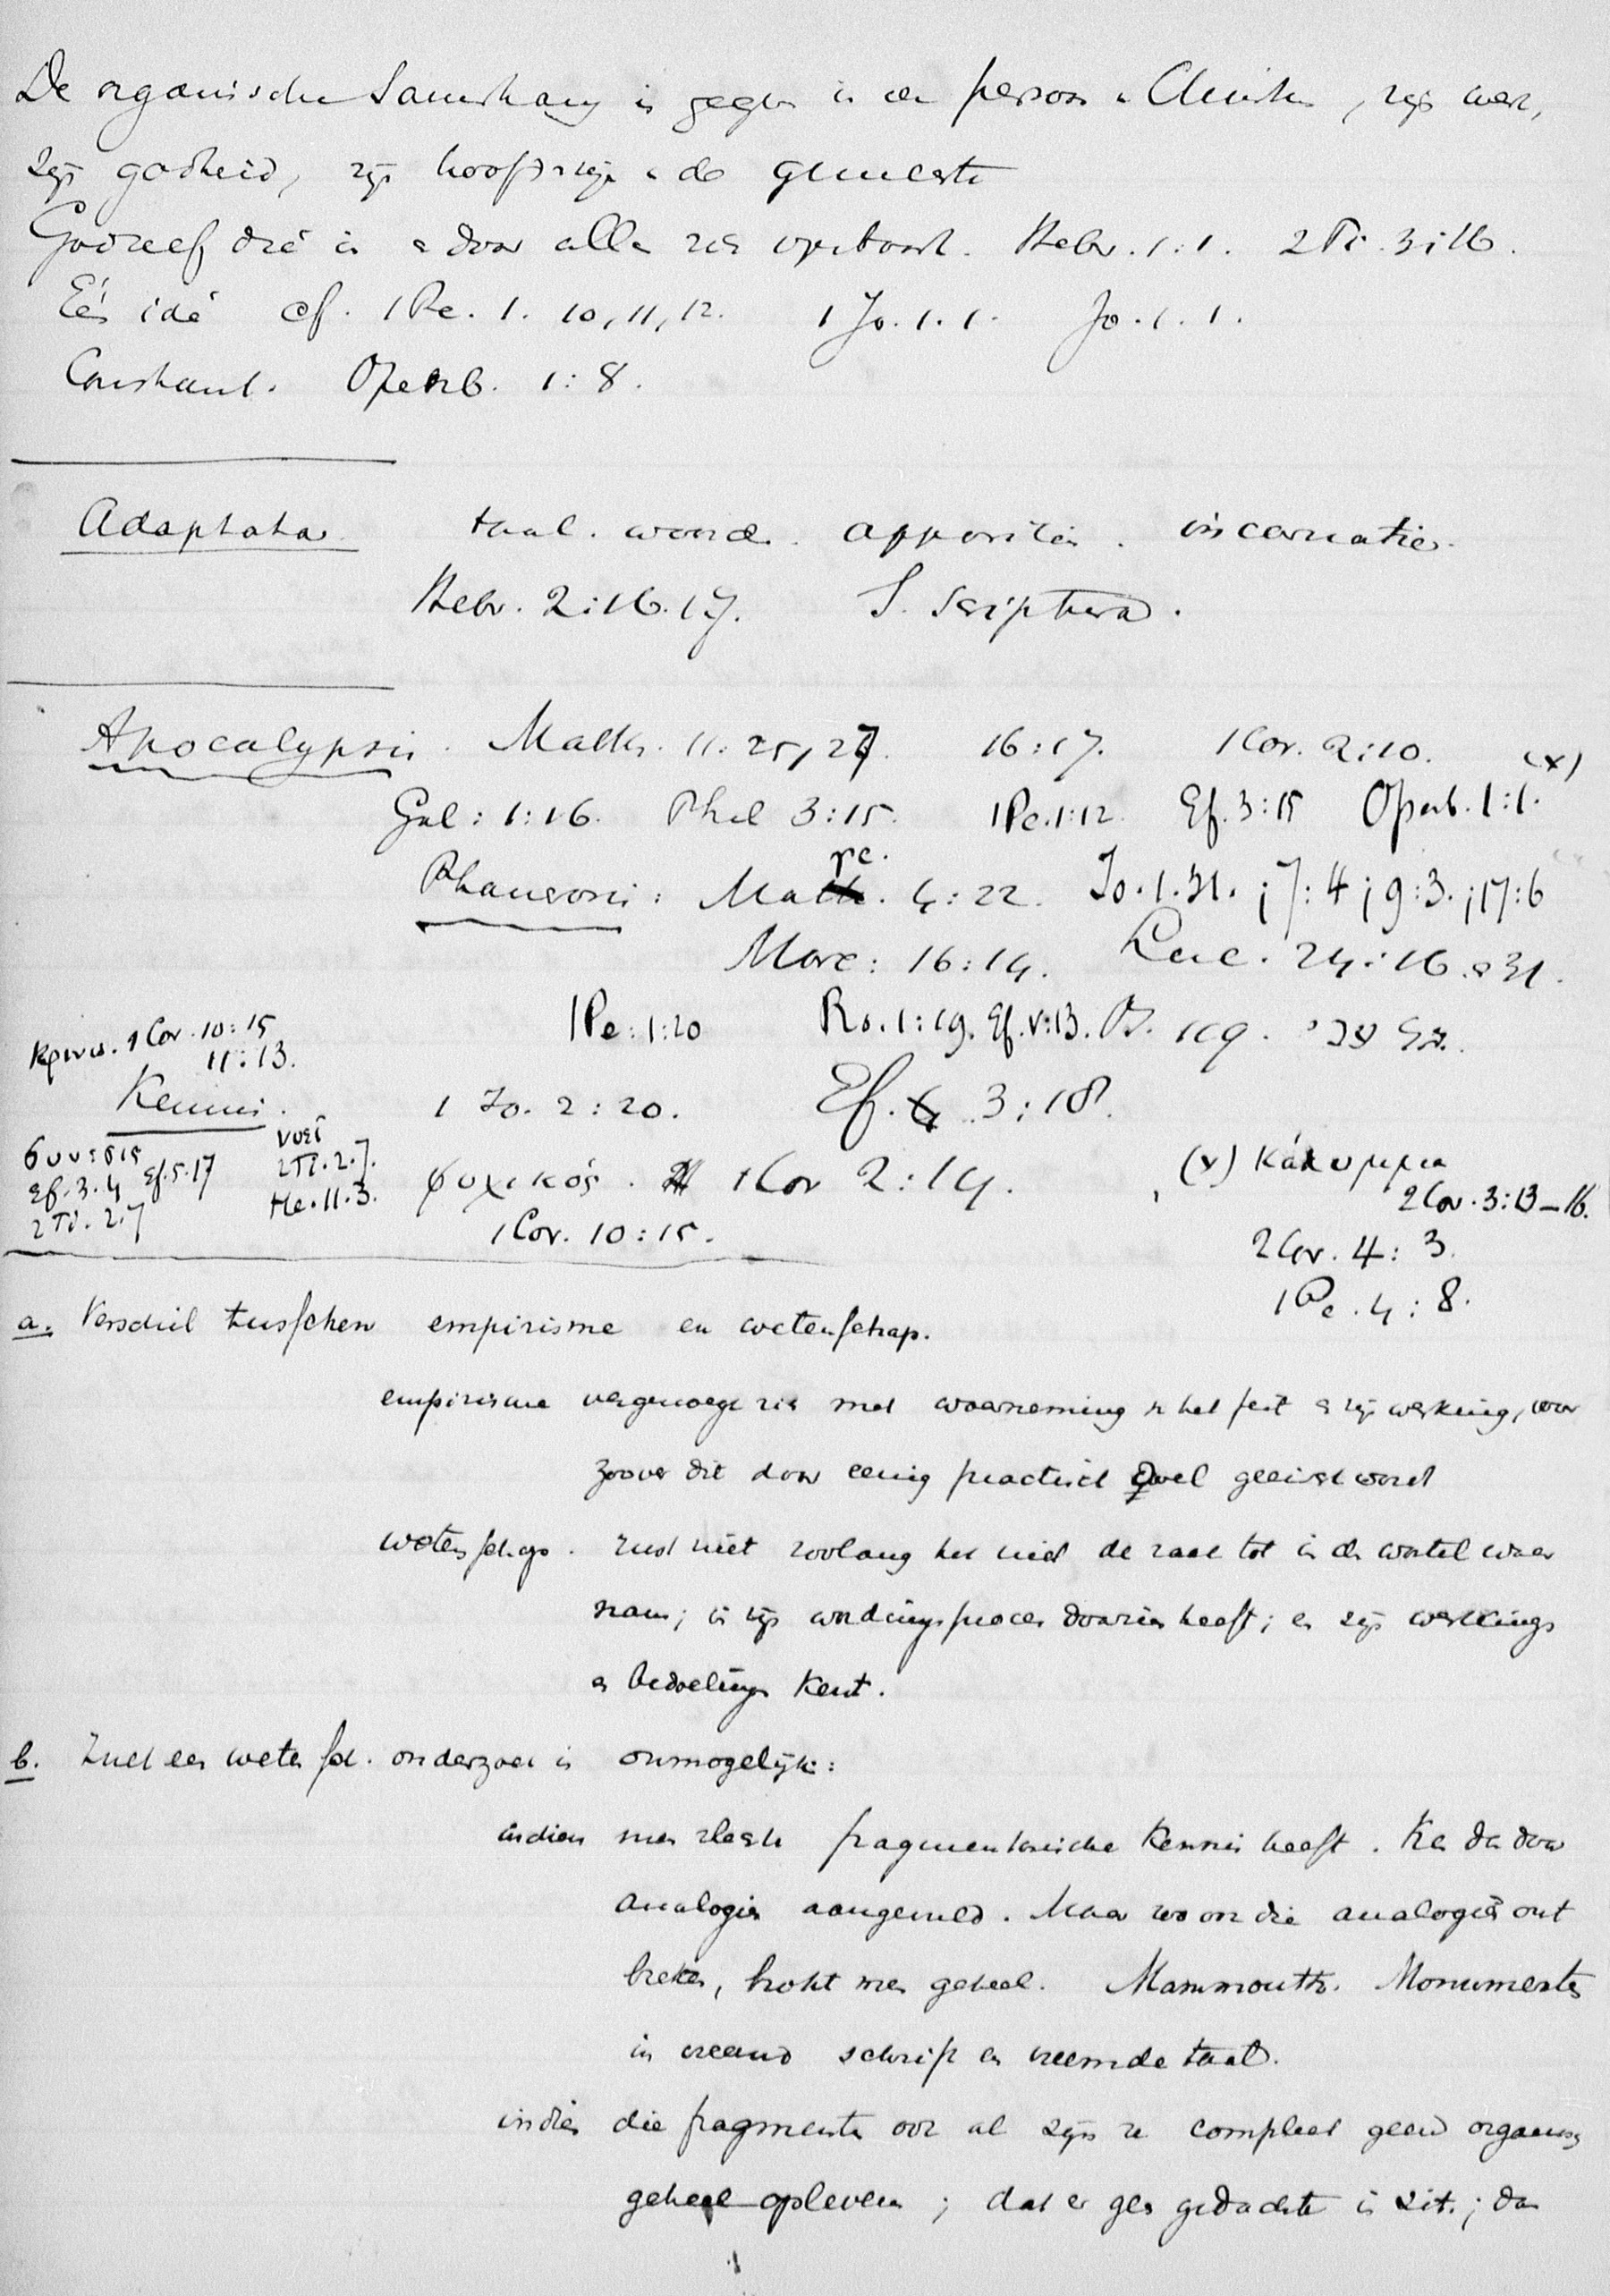 De organische Samenhang is gegev in den persoon v Christus, zijn werk,
zijn godheid, zijn hoofd zijn v de gemeente
God zelf die in en door alles zich openbaart. Hebr. 1:1. 2 Ti. 3:16.
Eén idé cf. 1 Pe. 1. 10, 11, 12. 1 Jo. 1. 1. Jo. 1. 1.
Constant. Openb. 1:8.
Adaptata taal. woord. apparitien. incarnatie.
Hebr. 2:16.17. S. Scriptura.
Apocalypsis. Matth. 11:25, 27. 16:17. 1 Cor. 2:10. (x)
Gal: 1:16. Phil 3:15. 1 Pe. 1:12. Ef. 3:15 Openb. 1:1.
Phanerosis: Marc. 4:22. Jo. 1.31. ; 7:4 ; 9:3. ; 17:6
Marc: 16:14. Luc. 24:16 & 31.
1 Pe: 1:20 Ro. 1:19. Ef. V:13. Ps. 119.
κρινω. 1 Cor. 10:15
11:13.
Kennis. 1 Jo. 2:20. Ef. 3:18.
συνεσις Ef. 3.4 Ef. 5.17 2 Ti. 2.7
νοεῖ 2 Ti. 2.7. He. 11.3.
ψυχικός. 1 Cor 2:14.
1 Cor. 10:15.
(x) Κάλυμμα
2 Cor. 3:13–16.
2 Cor. 4:3.
1 Pe. 4:8.
a. Verschil tusschen empirisme en wetenschap.
empirisme vergenoegt zich met waarneming v het feit en zijn werking, voor
zoover dit door eenig practisch doel geeischt wordt
wetenschap. rust niet zoolang het niet de zaak tot in den wortel waar
nam; in zijn wordingsproces doorzien heeft; en zijn werkings
en bedoelingen kent.
b. Zulk een wetensch. onderzoek is onmogelijk:
indien men slechts fragmentarische kennis heeft. Kan dan door
analogien aangevuld. Maar waar ook die analogiën ont
breken, stokt men geheel. Mammouth. Monumenten
in vreemd schrift en vreemde taal.
indien die fragmenten ook al zijn ze compleet geen organisch
geheel opleveren; dat er geen gedachte in zit; dan